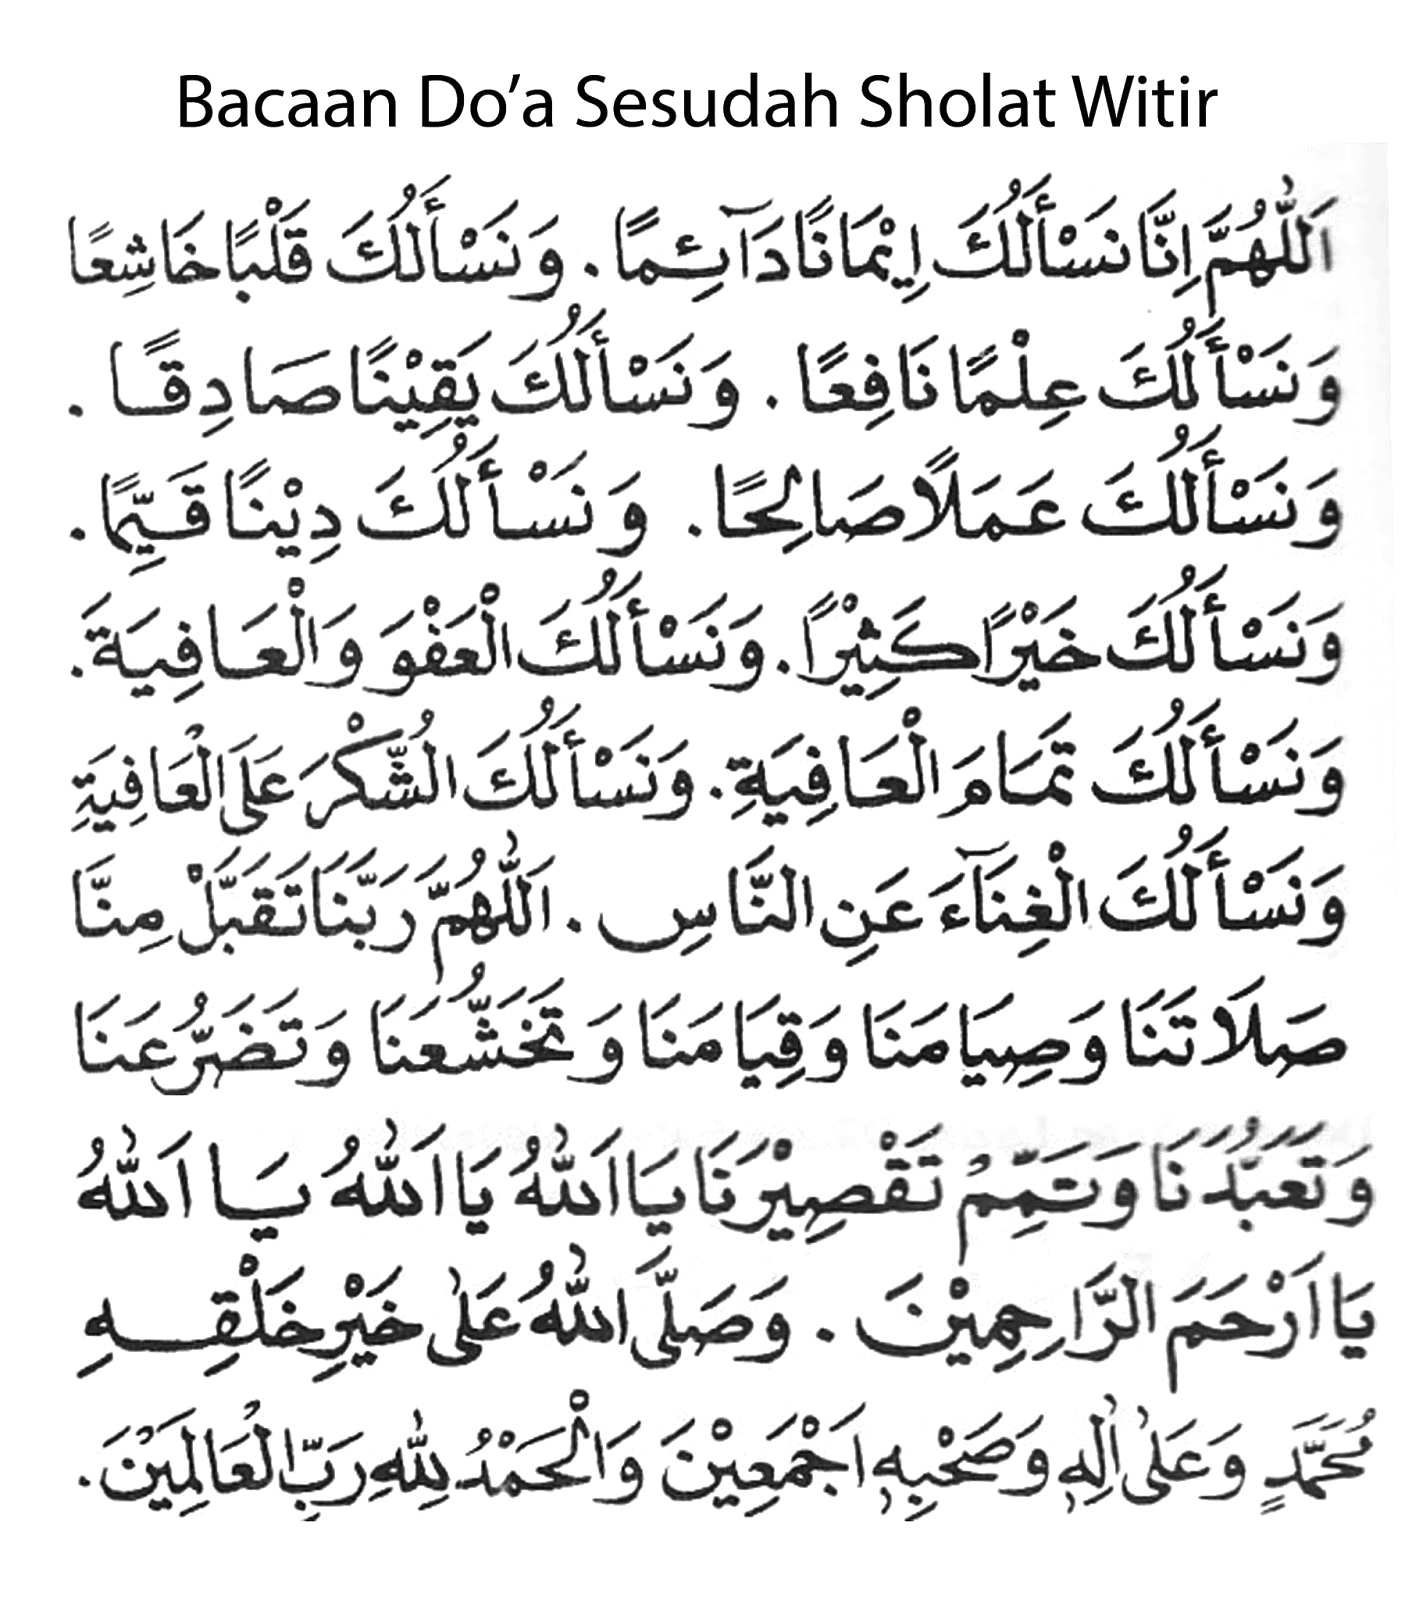 Bacaan Do'a Sesudah Sholat Witir
اَللّٰهُمَّ اِنَّا نَسْأَلُكَ اِيْمَانًا دَآئِمًا . وَنَسْأَلُكَ قَلْبًا خَاشِعًا
وَنَسْأَلُكَ عِلْمًا نَافِعًا . وَنَسْأَلُكَ يَقِيْنًا صَادِقًا .
وَنَسْأَلُكَ عَمَلًا صَالِحًا . وَنَسْأَلُكَ دِيْنًا قَيِّمًا .
وَنَسْأَلُكَ خَيْرًا كَثِيْرًا . وَنَسْأَلُكَ الْعَفْوَ وَالْعَافِيَةَ .
وَنَسْأَلُكَ تَمَامَ الْعَافِيَةِ . وَنَسْأَلُكَ الشُّكْرَ عَلَى الْعَافِيَةِ
وَنَسْأَلُكَ الْغِنَآءَ عَنِ النَّاسِ . اَللّٰهُمَّ رَبَّنَا تَقَبَّلْ مِنَّا
صَلَاتَنَا وَصِيَامَنَا وَقِيَامَنَا وَتَخَشُّعَنَا وَتَضَرُّعَنَا
وَتَعَبُّدَنَا وَتَمِّمْ تَقْصِيْرَنَا يَا اَللّٰهُ يَا اَللّٰهُ يَا اَللّٰهُ
يَا اَرْحَمَ الرَّاحِمِيْنَ . وَصَلَّى اللّٰهُ عَلٰى خَيْرِ خَلْقِهِ
مُحَمَّدٍ وَعَلٰى اٰلِهٖ وَصَحْبِهٖ اَجْمَعِيْنَ وَالْحَمْدُ لِلّٰهِ رَبِّ الْعَالَمِيْنَ .